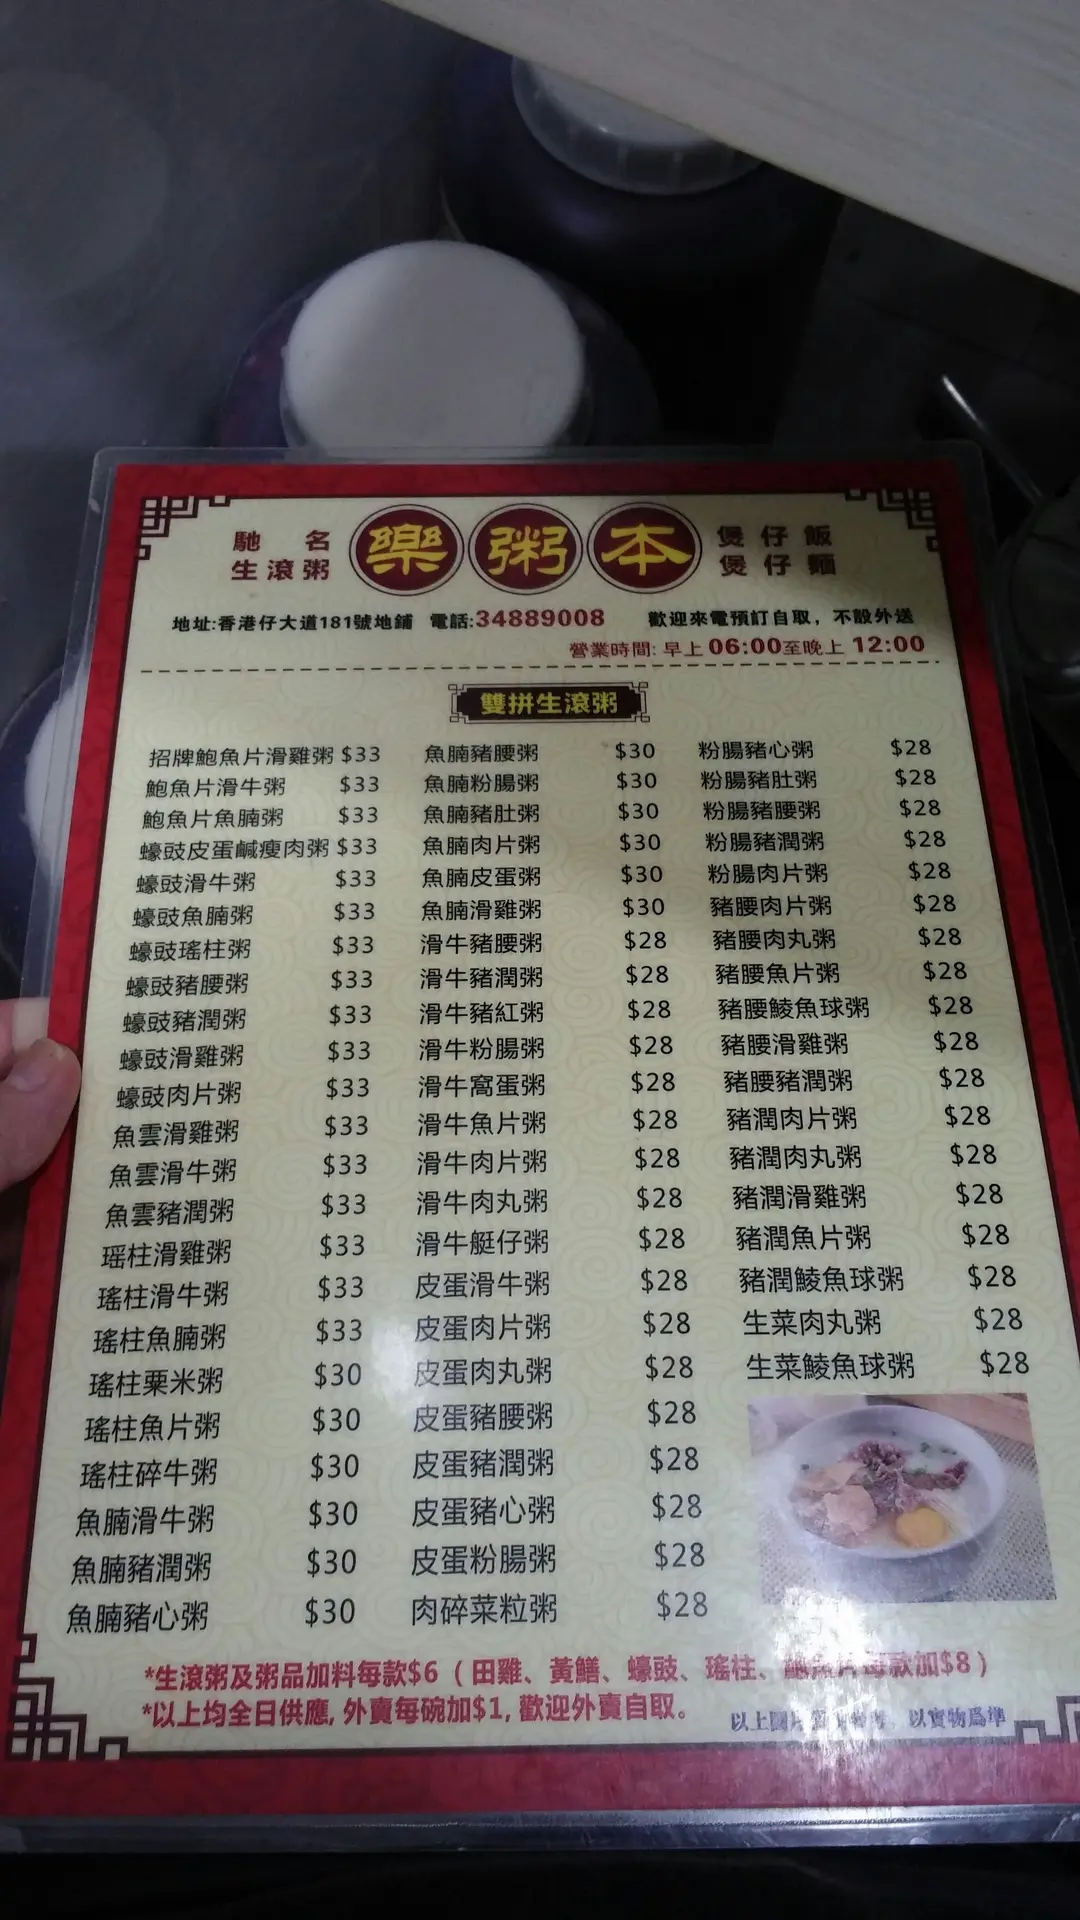 馳名
生滾粥
樂粥本
煲仔飯
煲仔麵
地址:香港仔大道181號地鋪 電話:34889008 歡迎來電預訂自取，不設外送
營業時間: 早上 06:00至晚上 12:00
雙拼生滾粥
招牌鮑魚片滑雞粥 $33
鮑魚片滑牛粥 $33
鮑魚片魚腩粥 $33
蠔豉皮蛋鹹瘦肉粥 $33
蠔豉滑牛粥 $33
蠔豉魚腩粥 $33
蠔豉瑤柱粥 $33
蠔豉豬腰粥 $33
蠔豉豬潤粥 $33
蠔豉滑雞粥 $33
蠔豉肉片粥 $33
魚雲滑雞粥 $33
魚雲滑牛粥 $33
魚雲豬潤粥 $33
瑶柱滑雞粥 $33
瑤柱滑牛粥 $33
瑤柱魚腩粥 $33
瑤柱粟米粥 $30
瑤柱魚片粥 $30
瑤柱碎牛粥 $30
魚腩滑牛粥 $30
魚腩豬潤粥 $30
魚腩豬心粥 $30
魚腩豬腰粥 $30
魚腩粉腸粥 $30
魚腩豬肚粥 $30
魚腩肉片粥 $30
魚腩皮蛋粥 $30
魚腩滑雞粥 $30
滑牛豬腰粥 $28
滑牛豬潤粥 $28
滑牛豬紅粥 $28
滑牛粉腸粥 $28
滑牛窩蛋粥 $28
滑牛魚片粥 $28
滑牛肉片粥 $28
滑牛肉丸粥 $28
滑牛艇仔粥 $28
皮蛋滑牛粥 $28
皮蛋肉片粥 $28
皮蛋肉丸粥 $28
皮蛋豬腰粥 $28
皮蛋豬潤粥 $28
皮蛋豬心粥 $28
皮蛋粉腸粥 $28
肉碎菜粒粥 $28
粉腸豬心粥 $28
粉腸豬肚粥 $28
粉腸豬腰粥 $28
粉腸豬潤粥 $28
粉腸肉片粥 $28
豬腰肉片粥 $28
豬腰肉丸粥 $28
豬腰魚片粥 $28
豬腰鯪魚球粥 $28
豬腰滑雞粥 $28
豬腰豬潤粥 $28
豬潤肉片粥 $28
豬潤肉丸粥 $28
豬潤滑雞粥 $28
豬潤魚片粥 $28
豬潤鯪魚球粥 $28
生菜肉丸粥 $28
生菜鯪魚球粥 $28
*生滾粥及粥品加料每款$6（田雞、黃鱔、蠔豉、瑤柱、鮑魚片每款加$8）
*以上均全日供應, 外賣每碗加$1, 歡迎外賣自取。
以上圖 以實物爲準